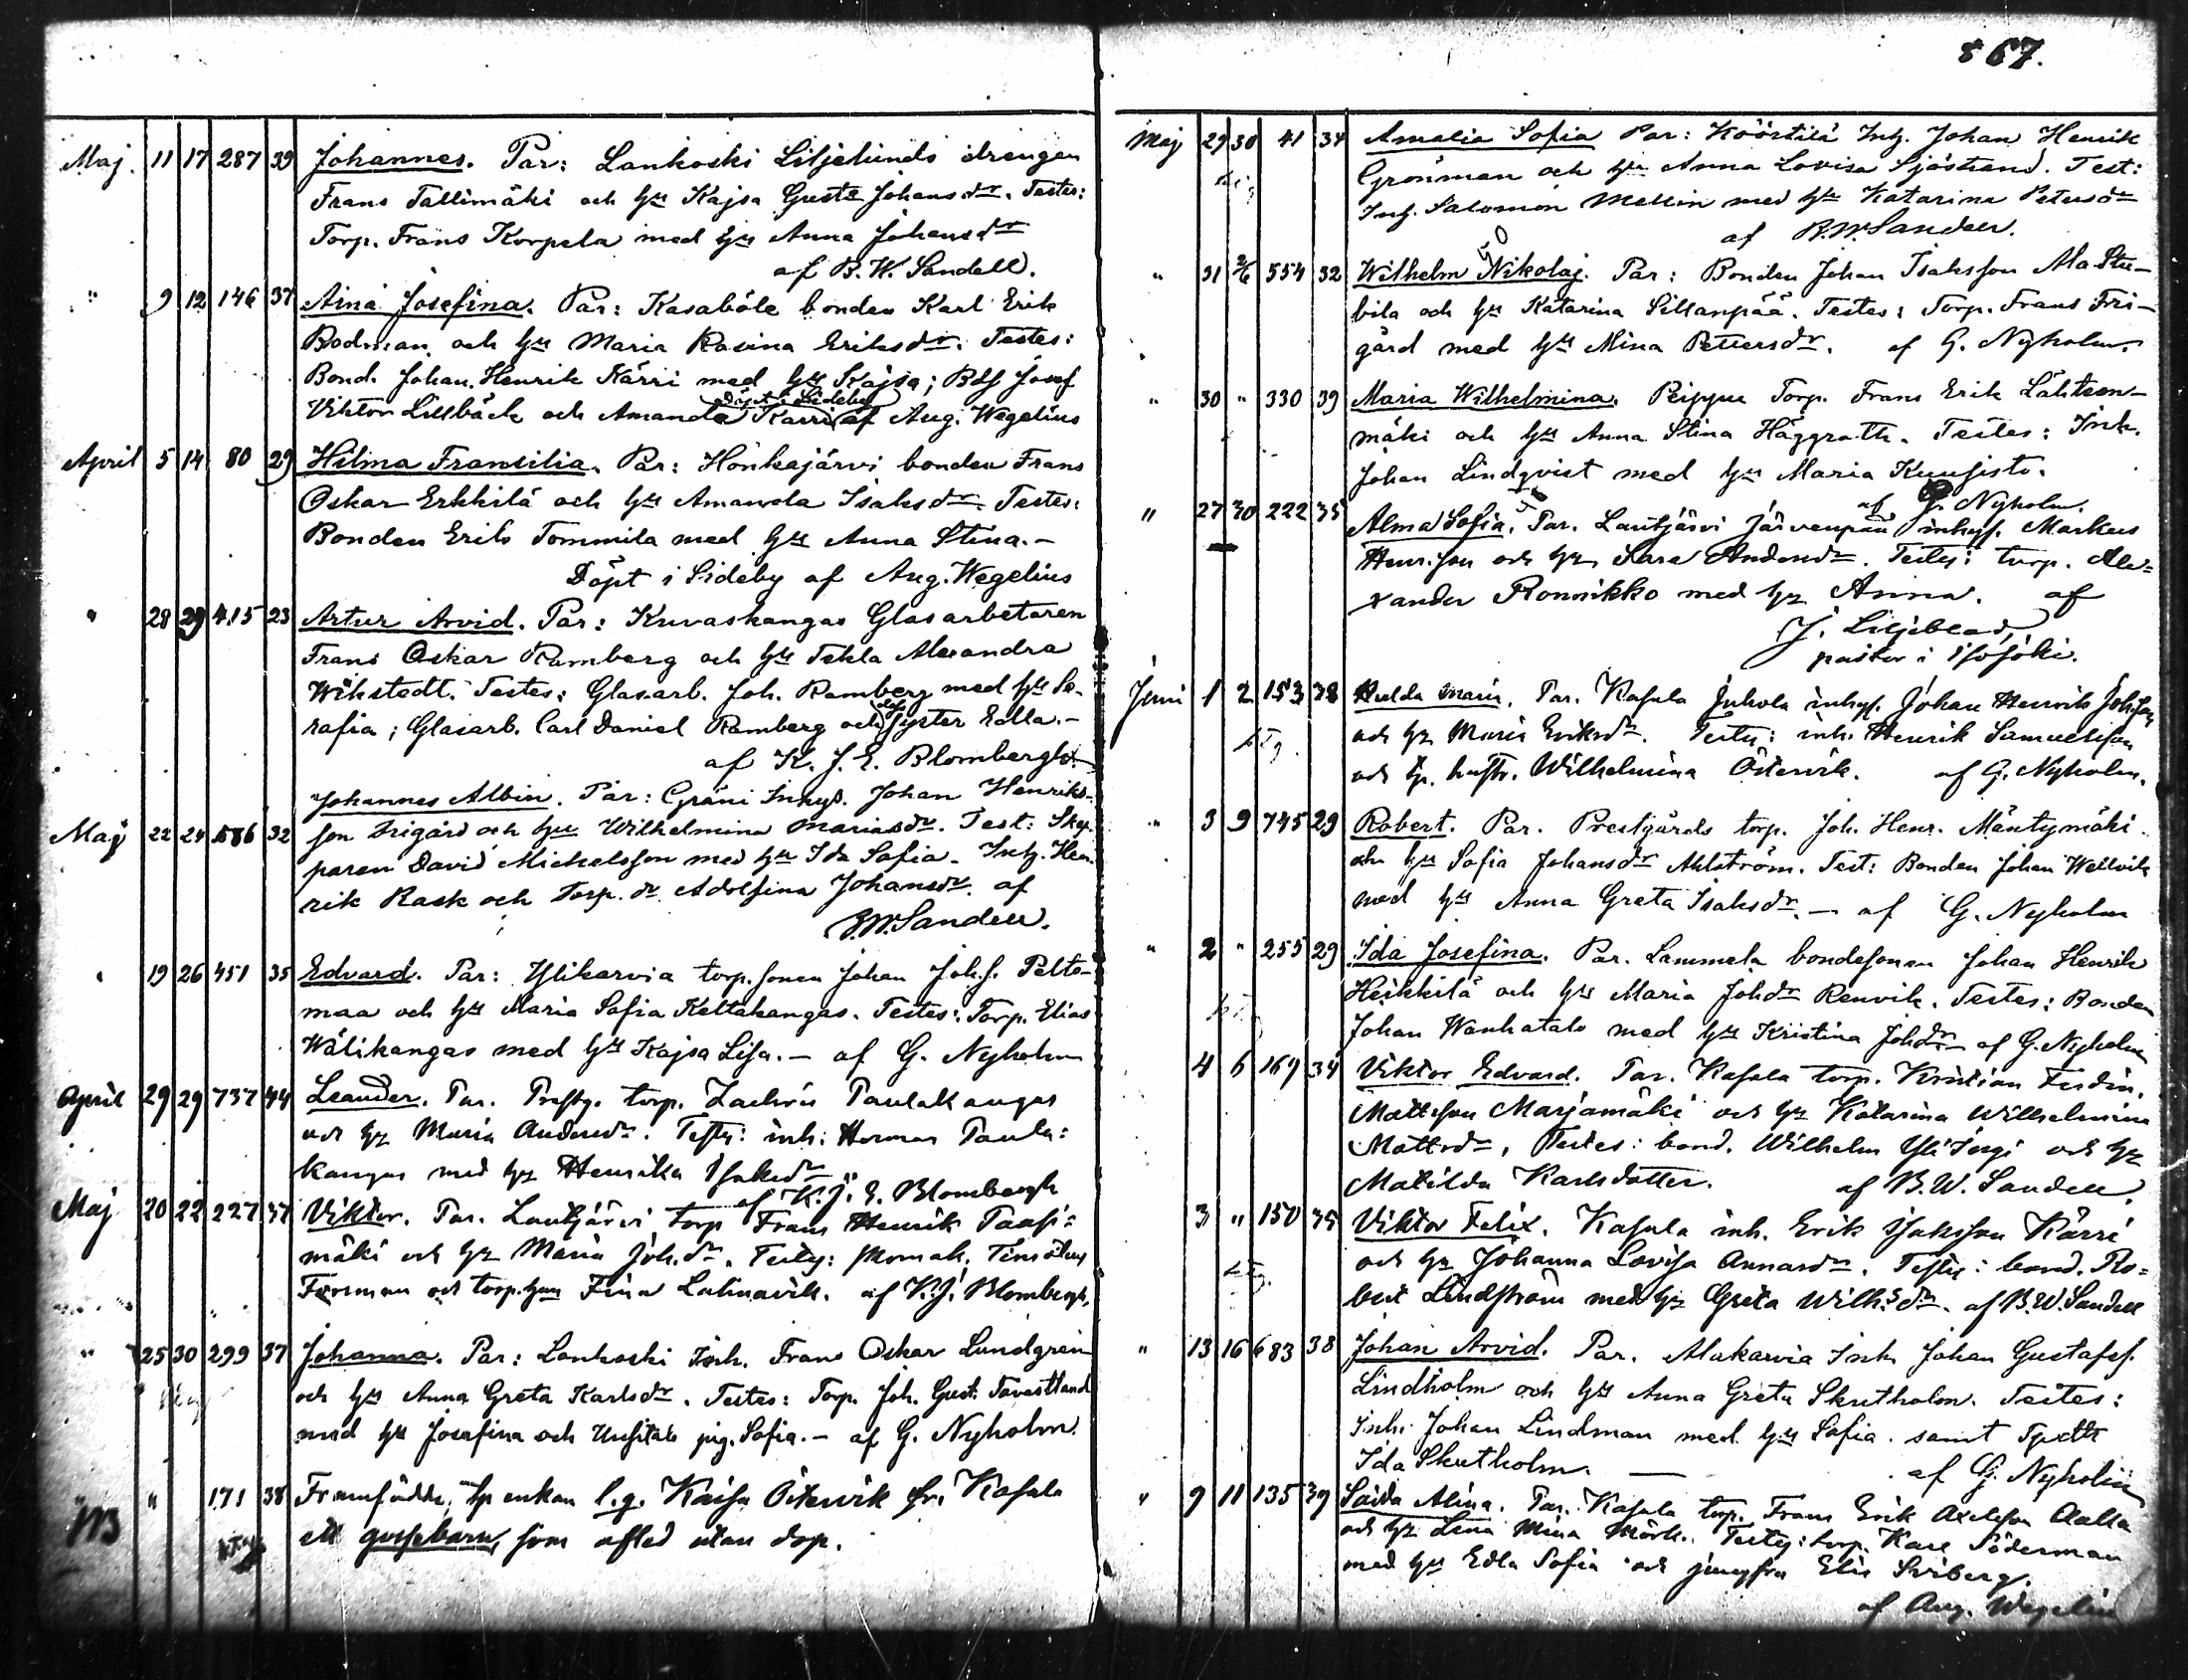 867.
Maj. 11 17 287 39 Johannes. Par: Lankoski Liljelunds drengen
Frans Tallimäki och hu Kajsa Gusta Johansdr. Testes:
Torp. Frans Korpela med hu Anna Johansdr
af B. W. Sandell.
" 9 12 146 37 Aina Josefina. Par: Kasaböle bonden Karl Erik
Bodman och hu Maria Rosina Eriksdr. Testes:
Bond. Johan Henrik Kärri med hu Kajsa; Bds Josef
döpt i Sideby
Viktor Lillbäck och Amanda Karri af Aug. Wegelius
April 5 14 80 29 Hilma Fransilia. Par: Honkajärvi bonden Frans
Oskar Erkkilä och hu Amanda Isaksdr. Testes:
Bonden Erik Tommila med hu Anna Stina.-
Döpt i Sideby af Aug. Wegelius
" 28 29 415 23 Artur Arvid. Par: Kuvaskangas Glasarbetaren
Frans Oskar Ramberg och hu Tekla Alexandra
Wikstedt. Testes: Glasarb. Joh. Ramberg med hu Se-
rafia; Glasarb. Carl Daniel Ramberg och dess syster Edla.-
af K. J. E. Blombergh.
Johannes Albin. Par: Gräni Inhys. Johan Henriks-
Maj 22 24 586 32 son Frigård och hu Wilhelmina Mariasdr. Test: Skep-
paren David Michelsson med hu Ida Sofia. Inh. Hen-
rik Rask och torp. dr Adolfina Johansdr. af
B.W. Sandell.
" 19 26 451 35 Edvard. Par: Ylikarvia torp. sonen Johan Joh.s. Pelto-
maa och hu Maria Sofia Keltakangas. Testes: Torp. Elias
Wälikangas med hu Kajsa Lisa.- af G. Nyholm
April 29 29 737 44 Leander. Par. Prestg. torp. Zachris Paulakangas
och hu Maria Andersdr. Testes: inh. Herman Paula:
kangas med hu Henrika Isaksdr
af K. J. E. Blombergh
Maj 20 22 227 37 Viktor. Par. Lautjärvi torp Frans Henrik Taasi=
mäki och hu Maria Joh.dr. Testes: skomak. Timoteus
Forsman och torp. hun Fina Lahnavik. af K.J. Blombergh,
" 25 30 299 37 Johanna. Par: Lankoski Inh. Frans Oskar Lundgren
och hu Anna Greta Karlsdr. Testes: Torp. Joh. Gust. Tavastland
med hu Josefina och Uusitalo pig. Sofia.- af G. Nyholm.
" 171 38 Framfödde, enkan l.g. Kaisa Östervik fr. Kasala
ett gossebarn, som afled utan dop.
Maj 29 30 41 34 Amalia Sofia Par: Köörtilä Inh. Johan Henrik
Grönman och hu Anna Lovisa Sjöstrand. Test:
Inh. Salomon Mellin med hu Katarina Petersdr
af B.W. Sandell.
" 31 2/6 554 32 Wilhelm Nikolaj. Par: Bonden Johan Isaksson Ala Stu-
bila och hu Katarina Sillanpää. Testes: Torp. Frans Fri-
gård med hu Mina Pettersdr. af G. Nyholm.
" 30 " 330 39 Maria Wilhelmina. Peippu Torp. Frans Erik Lähteen-
mäki och hu Anna Stina Häggroth. Testes: Inh.
Johan Lindqvist med hu Maria Kuusisto.
af G. Nyholm.
" 27 30 222 35 Alma Sofia. Par. Lautjärvi Järvenpää inhys. Markus
Henr.son och hu Sara Andersdr. Testes: torp. Ale=
xander Ronnikko med hu Anna. af
J. Liljeblad,
pastor i Isojoki.
Juni 1 2 153 38 Hulda Maria. Par. Kasala Juhola inhys. Johan Henrik Joh.son
och hu Maria Eriksdr. Testes: inh. Henrik Samuelsson
och hustr. Wilhelmina Östervik. af G. Nyholm.
" 3 9 745 29 Robert. Par. Prestgårds torp. Joh. Henr. Mäntymäki
och hu Sofia Johansdr Ahlström. Test: Bonden Johan Wellvik
med hu Anna Greta Isaksdr. - af G. Nyholm
" 2 " 255 29 Ida Josefina. Par. Lammela bondesonen Johan Henrik
Heikkilä och hu Maria Johdr Renvik. Testes: Bonden
Johan Wanhatalo med hu Kristina Johdr - af G. Nyholm
4 6 169 34 Viktor Edvard. Par. Kasala torp. Kristian Ferdin.
Mattsson Marjamäki och hu Katarina Wilhelmina
Mattsdr. Testes: bond. Wilhelm Yli Sorgi och hu
Matilda Karlsdotter. af B.W. Sandell.
3 " 150 35 Viktor Felix. Kasala inh. Erik Isaksson Kärri
och hu Johanna Lovisa Annasdr. Testes: bond. Ro=
bert Lindström med hu Greta Wilh.dr. af B.W. Sandell
" 13 16 683 38 Johan Arvid. Par. Alakarvia Inh. Johan Gustafss.
Lindholm och hu Anna Greta Skutholm. Testes:
Inh. Johan Lindman med hu Sofia. samt
Ida Skutholm. — af G. Nyholm
" 9 11 135 39 Saida Alina. Par. Kasala torp. Frans Erik Axelsson Aalto
och hu Lena Mina Mörk. Testes: torp. Karl Söderman
med hu Edla Sofia och jungfru Elis Sviberg.
af Aug. Wegelius